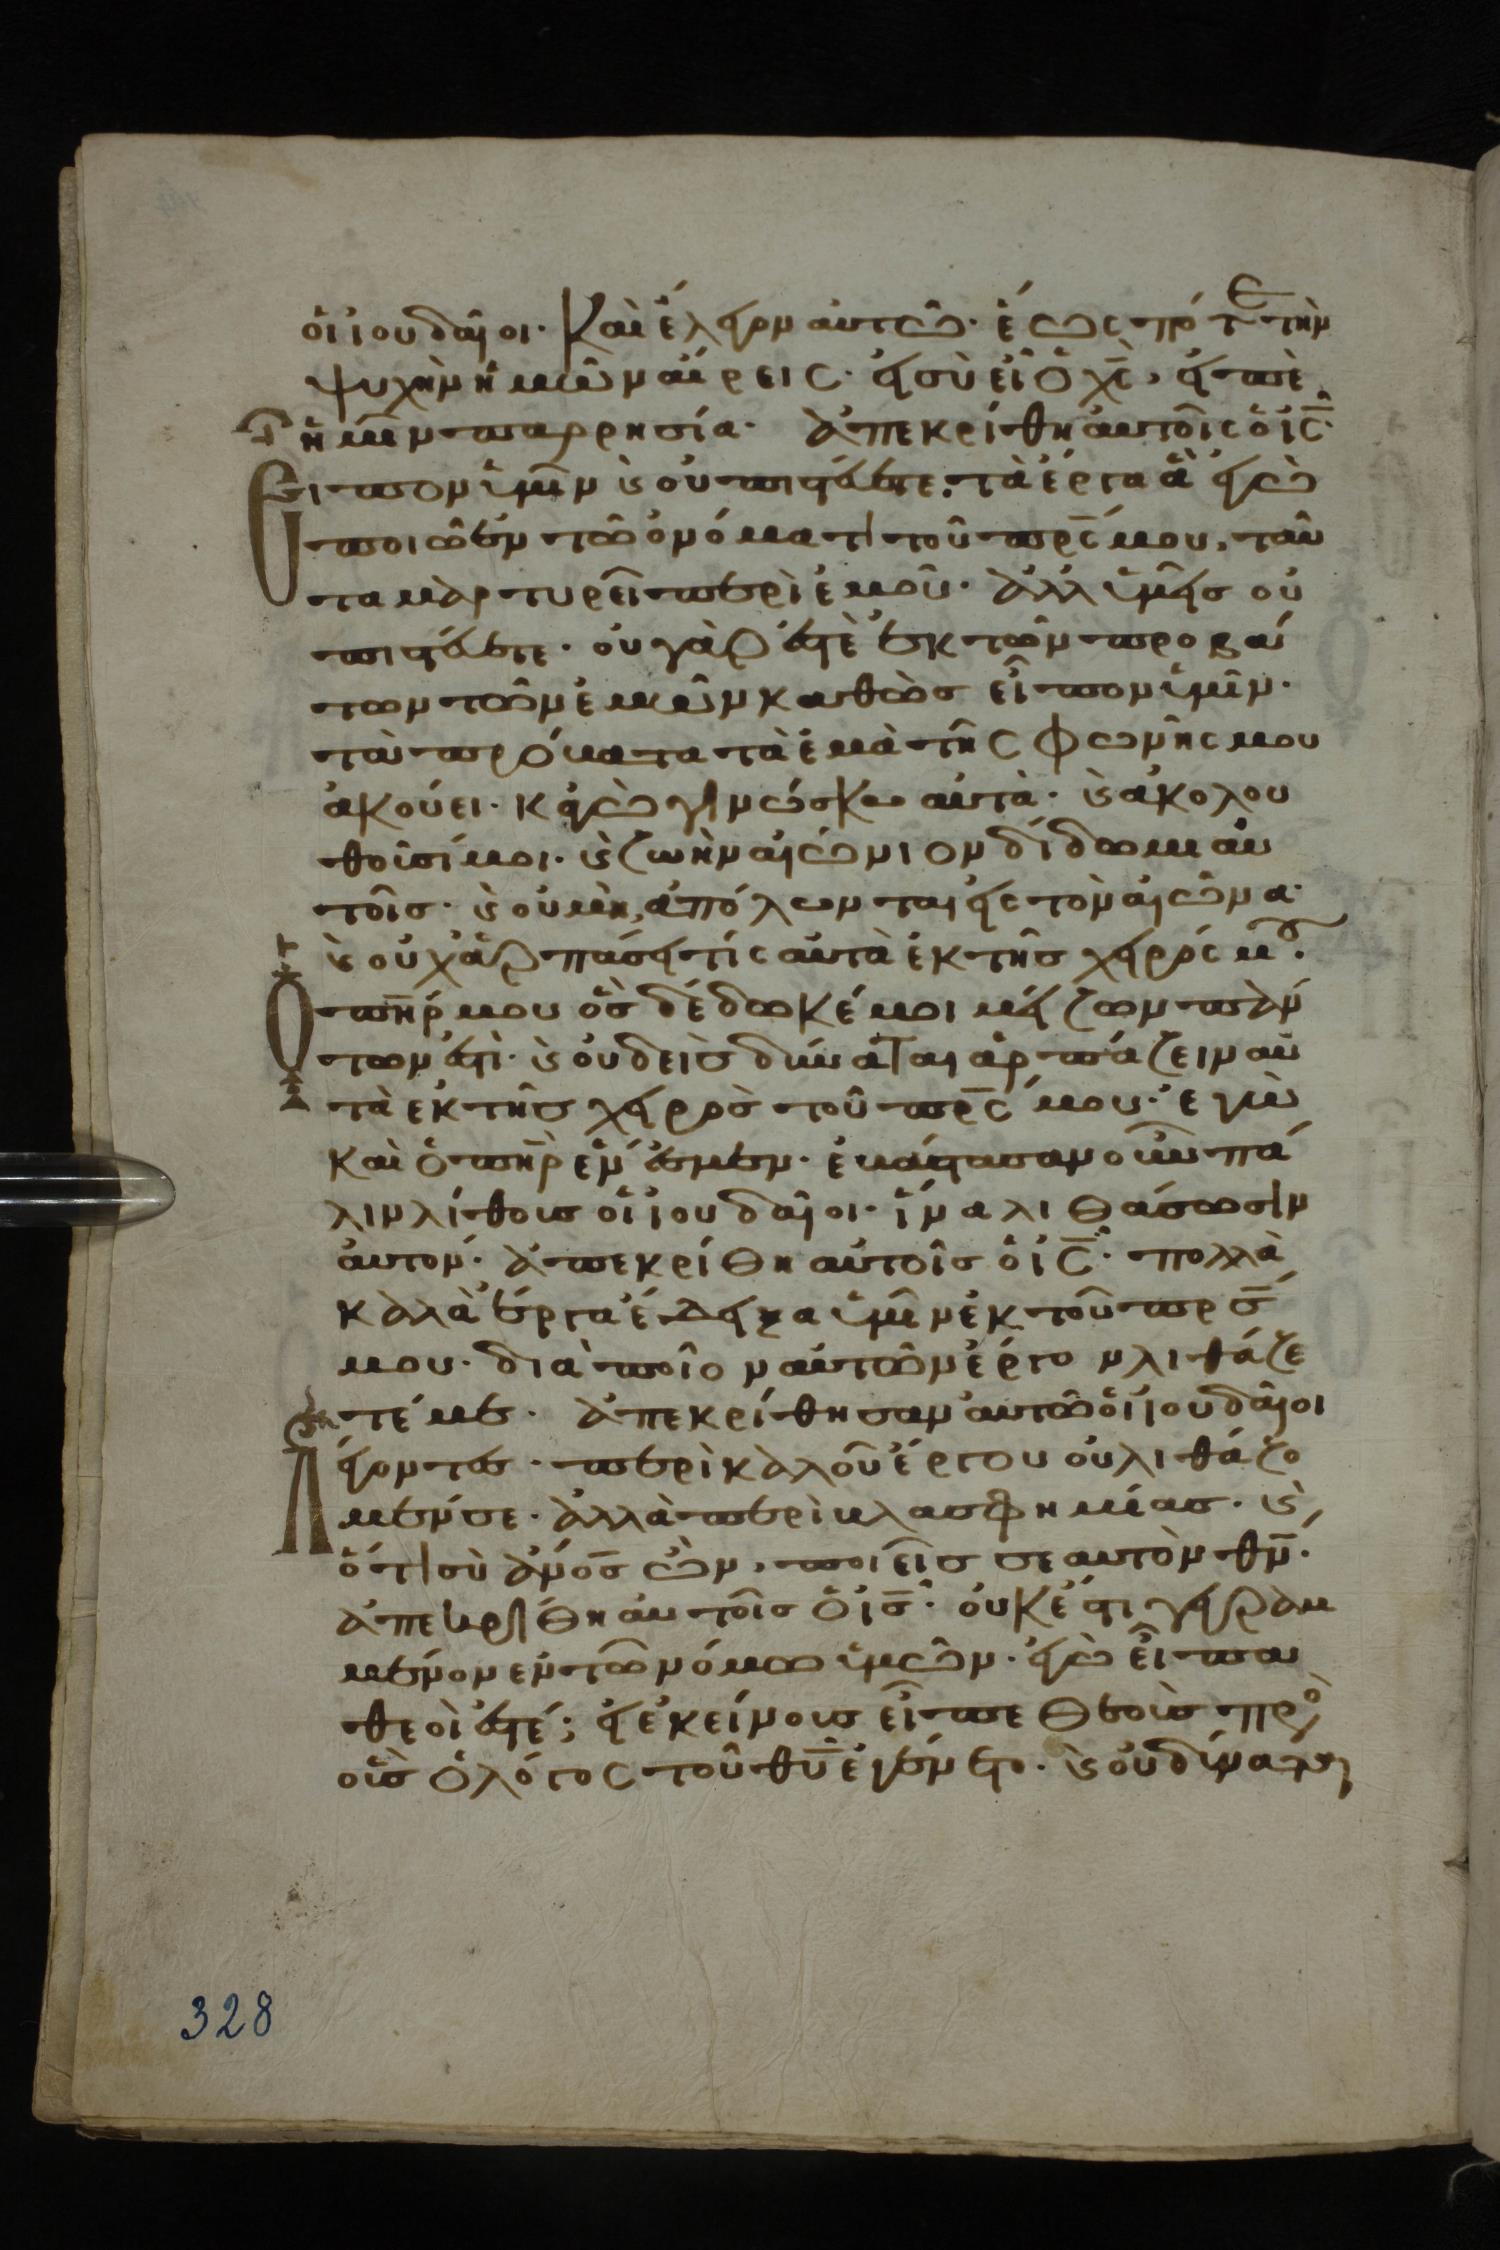 οἱ ἰουδαῖοι. Καὶ ἔλεγον αὐτῶ. ἕως πότε τὴν
ψυχὴν ἡμῶν αἴρεις. εἰ σὺ εἶ ὁ χς, εἰπὲ
ἡμῖν παρρησία. ἀπεκρίθη αὐτοῖς ὁ ις.
Εἶπον ὑμῖν καὶ οὐ πιστεύετε. τὰ ἔργα ἃ ἐγὼ
ποιῶ ἐν τῶ ὀνόματι τοῦ πρς μου, ταῦ
τα μαρτυρεῖ περὶ ἐμοῦ. ἀλλ ὑμεῖς οὐ
πιστεύετε. οὐ γάρ ἐστὲ ἐκ τῶν προβά
των τῶν ἐμῶν καθὼς εἶπον ὑμῖν.
τὰ πρόβατα τὰ ἐμὰ τῆς φωνῆς μου
ἀκούει. κἀγὼ γινώσκω αὐτὰ. καὶ ἀκολου
θοῦσί μοι. καὶ ζωὴν αἰώνιον δίδωμι αὐ
τοῖς. καὶ οὐ μὴ ἀπόλωνται εἰς τὸν αἰῶνα.
καὶ οὐχ ἁρπάσει τίς αὐτὰ ἐκ τῆς χειρός μου.
Ὁ πηρ μου ὃς δέδωκέ μοι μείζων πάν
των ἐστὶ. καὶ οὐδεὶς δύναται ἁρπάζειν αὐ
τὰ ἐκ τῆς χειρὸς τοῦ πρς μου. ἐγὼ
καὶ ὁ πηρ ἕν ἐσμεν. ἐβάστασαν οὖν πά
λιν λίθους οἱ ἰουδαῖοι. ἵνα λιθάσωσιν
αὐτον. ἀπεκρίθη αὐτοῖς ὁ ις. πολλὰ
καλὰ ἔργα ἔδειξα ὑμῖν ἐκ τοῦ πρς
μου. διὰ ποῖον αὐτῶν ἔργον λιθάζε
τέ με. ἀπεκρίθησαν αὐτῶ οἱ ἰουδαῖοι
Λέγοντες. περὶ καλοῦ ἔργου οὐ λιθάζο
μέν σε. ἀλλὰ περὶ βλασφημίας. καὶ
ὅτι σὺ ἄνος ὢν, ποιεῖς σεαυτὸν θν.
ἀπεκρίθη αὐτοῖς ὁ ις. οὐκ ἔστι γεγραμ
μένον ἐν τῶ νόμω ὑμῶν. ἐγὼ εἶπα
θεοὶ ἐστέ; εἰ ἐκείνους εἶπε θεοὺς πρὸς
οὓς ὁ λόγος τοῦ θυ ἐγένετο. καὶ οὐ δύναται
328